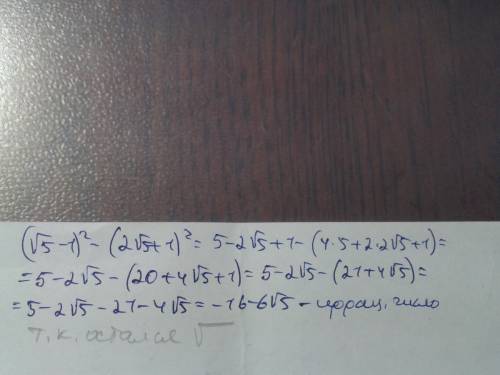 (√5-1)²-(2√5+1)²= 5-2√5+1-(4·5+2·2√5+1)=
=5-2√5-(20+4√5+1)=5-2√5-(21+4√5)=
=5-2√5-21-4√5=-16-6√5-иррац. число
т.к. остался √